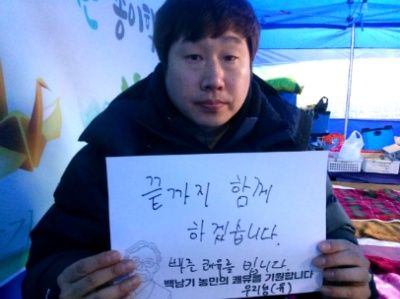 끝까지 함께
하겠습니다.
빠른 쾌유를 빕니다.
백남기 농민의 쾌유를 기원합니다